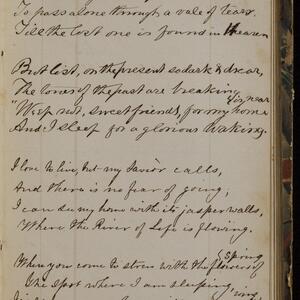 To pass alone through a vale of tears
Till the lost one is found in Heaven

But list, on the present so dark & drear,
The tones of the past are breaking
"Weep not, sweet friends, for my home is near
And I sleep for a glorious waking.

I love to live, but my Savior calls,
And there is no fear of going;
I can see my home with its jasper walls,
Where the River of Life is flowing.

When you come to strew with the flowers of spring
The spot where I am sleeping